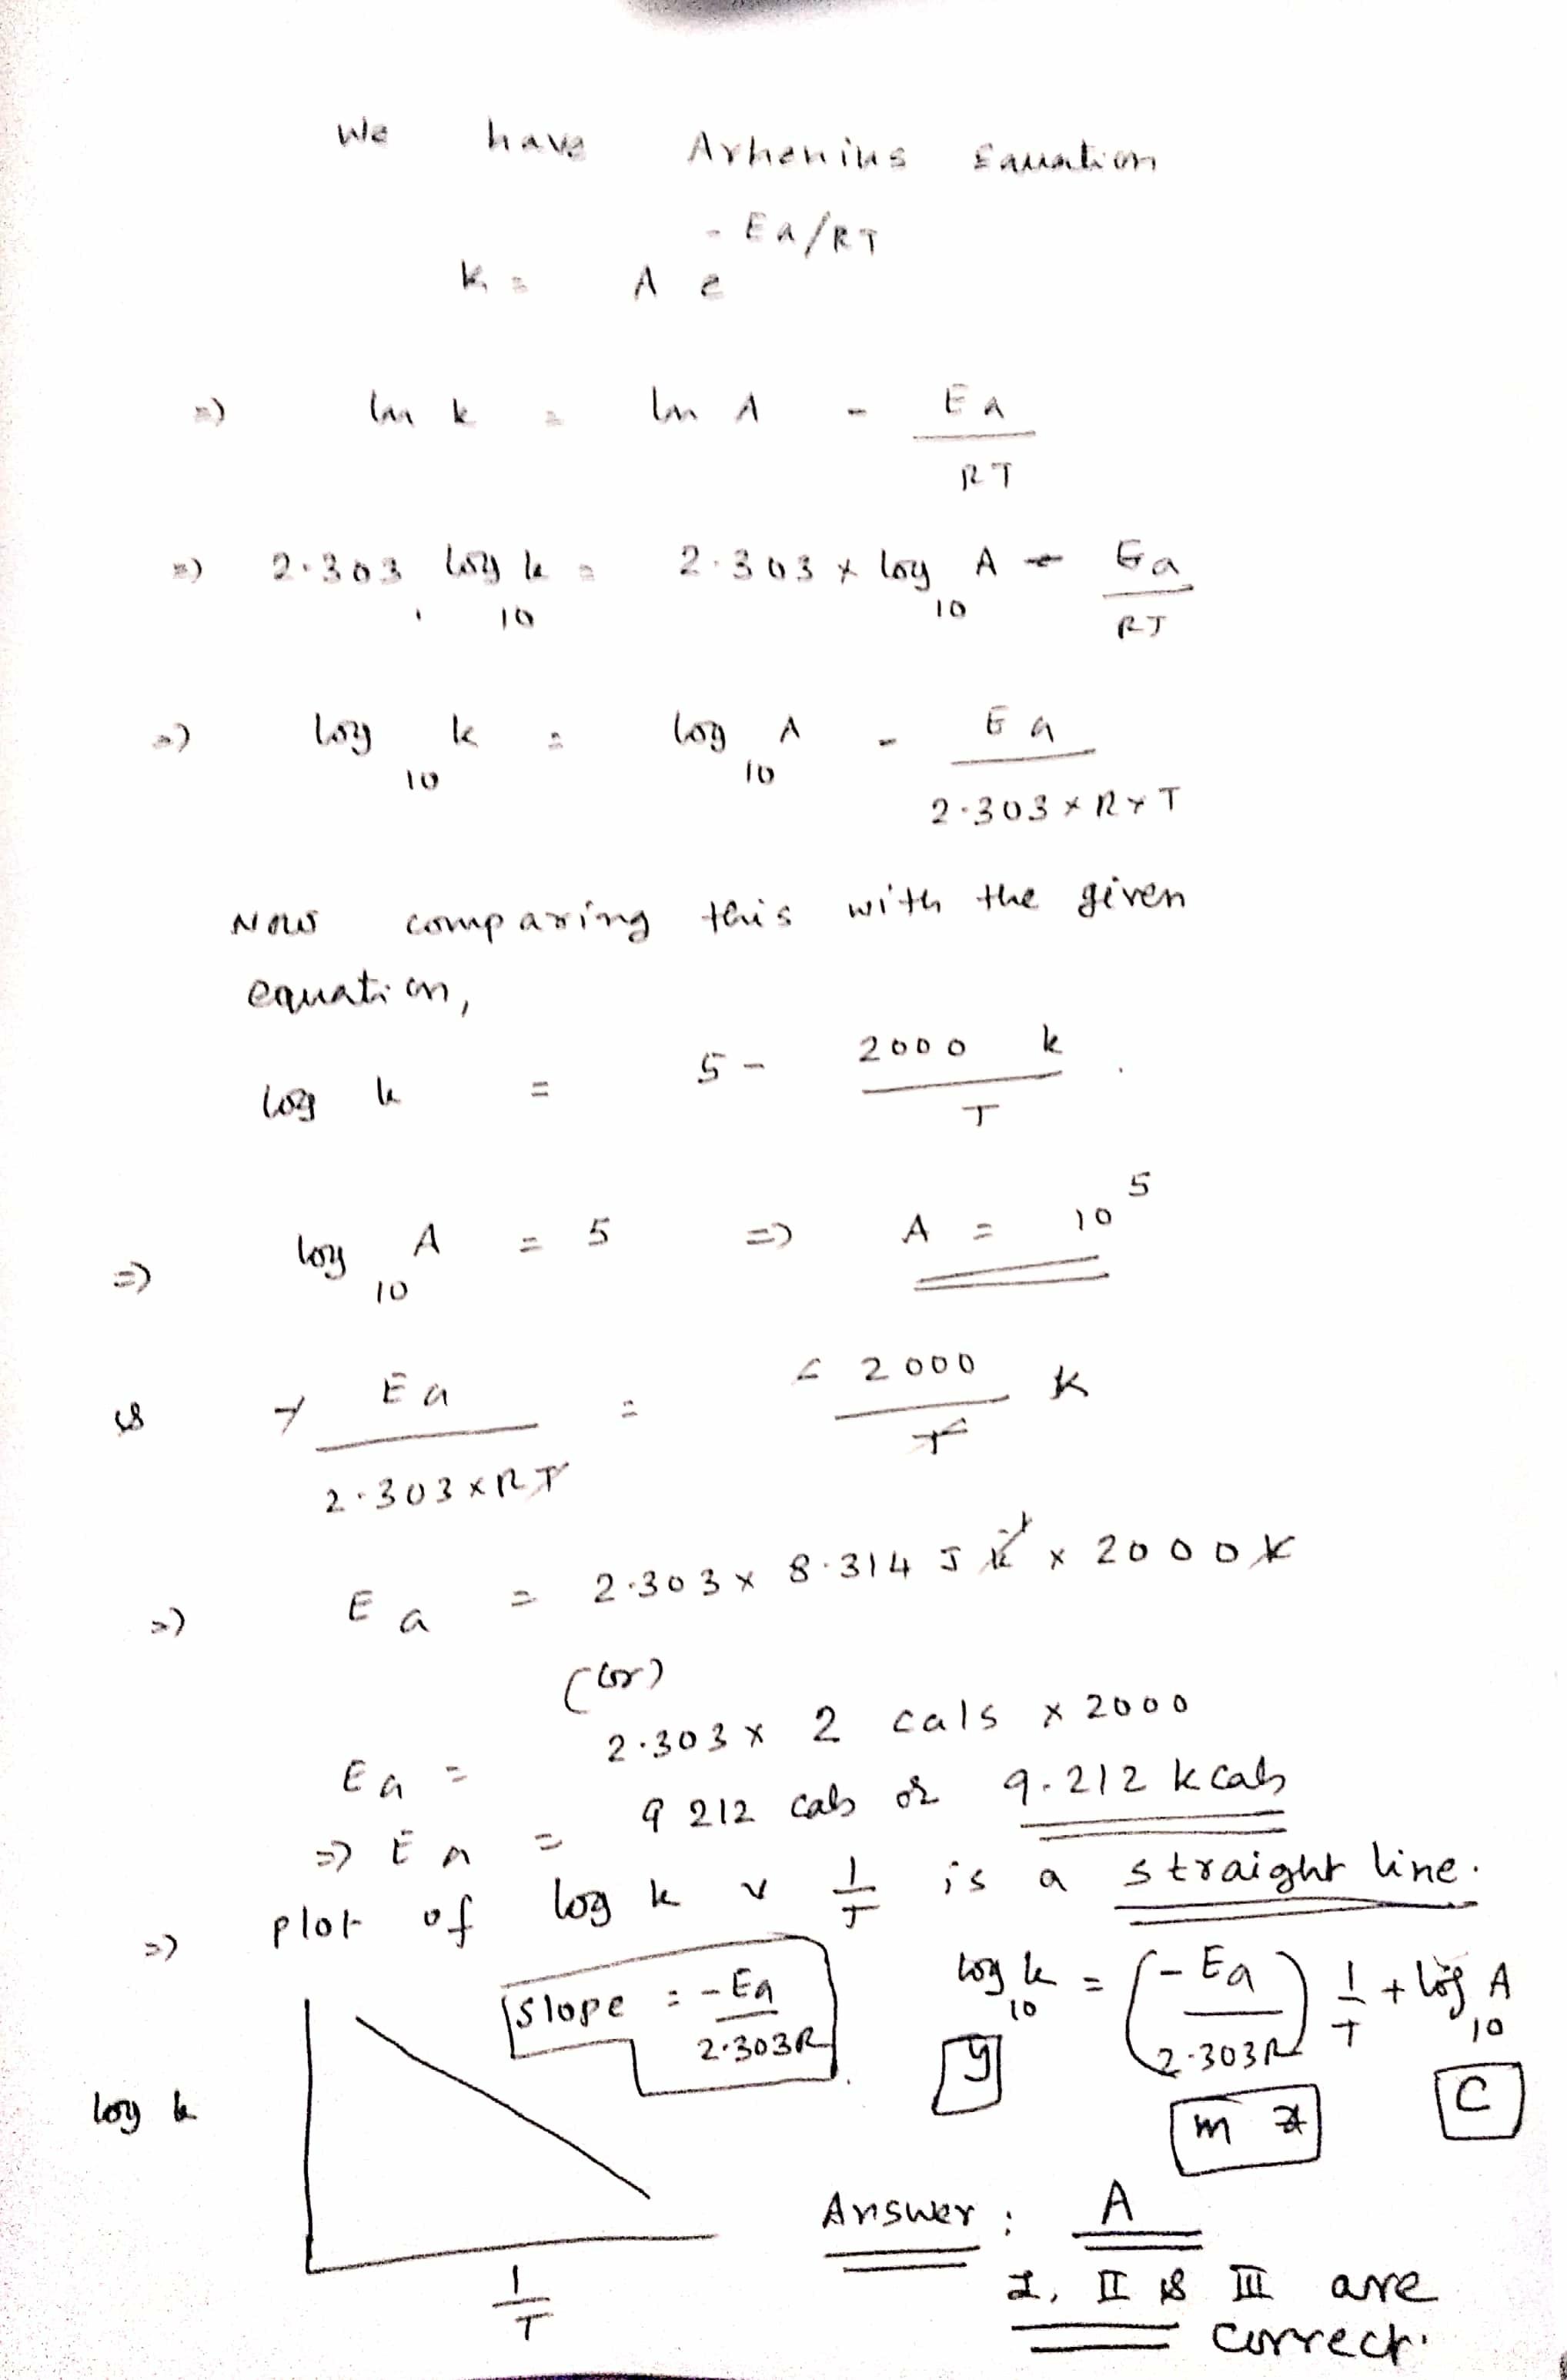 We have Arhenius Equation
k = A e^-Ea/RT
=> ln k = ln A - Ea/RT
=> 2.303 log10 k = 2.303 x log10 A - Ea/RT
=> log10 k = log10 A - Ea/2.303 x R x T
Now comparing this with the given
equation,
log k = 5 - 2000 k/T.
=> log10 A = 5 => A = 10^5
& - Ea/2.303 x RT = - 2000/T K
=> Ea = 2.303 x 8.314 J k^-1 x 2000 K
(or)
Ea = 2.303 x 2 cals x 2000
=> Ea = 9212 cals or 9.212 kcals
=> plot of log k v 1/T is a straight line.
slope = -Ea/2.303R
log10 k = (-Ea/2.303R) 1/T + log10 A
y
m x
C
log k
1/T
Answer : A
I, II & III are
correct.